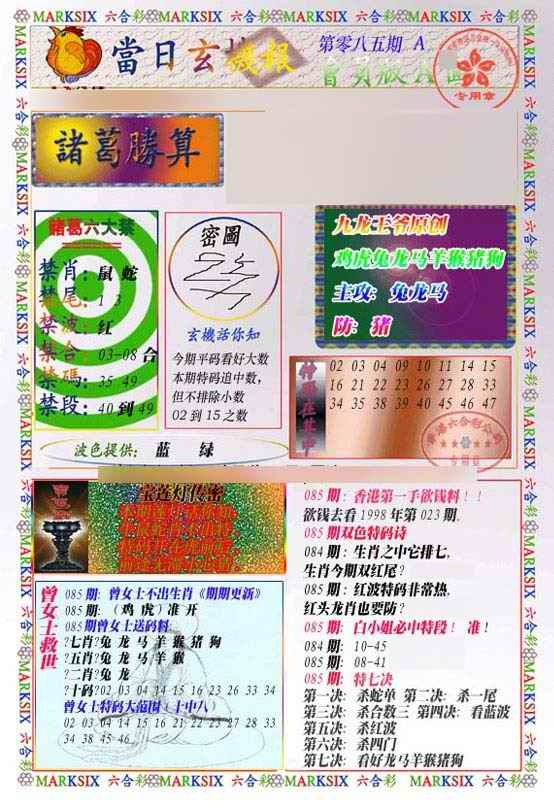 MARKSIX 六合彩 MARKSIX 六合彩 MARKSIX 六合彩 MARKSIX 六合彩
當日玄機報
第零八五期 A
會員版A面
专用章
諸葛勝算
諸葛六大禁
禁肖：鼠 蛇
禁尾：1 3
禁波：红
禁合：03-08合
禁碼：35 49
禁段：40到49
密圖
玄機話你知
今期平码看好大数
本期特码追中数，
但不排除小数
02到15之数
九龙王爷原创
鸡虎兔龙马羊猴猪狗
主攻：兔龙马
防：猪
02 03 04 09 10 11 14 15
16 21 22 23 26 27 28 33
34 35 38 39 40 45 46 47
波色提供： 蓝 绿
宝莲灯传密
曾女士救世
085期：曾女士不出生肖《期期更新》
085期：（鸡虎）准开
085期曾女士送码料：
?七肖?兔龙马羊猴猪狗
?五肖?兔龙马羊猴
?二肖?兔龙
?十码?02 03 04 14 15 16 23 26 33 34
曾女士特码大范围（十中八）
02 03 04 14 15 16 21 22 23 27 28 33
34 38 45 46
085期：香港第一手欲钱料！！
欲钱去看1998年第023期.
085期双色特码诗
084期：生肖之中它排七,
生肖今期双红尾?
085期：红波特码非常热,
红头龙肖也要防?
085期：白小姐必中特段！准！
084期：10-45
085期：08-41
085期：特七决
第一决：杀蛇单 第二决：杀一尾
第三决：杀合数三 第四决：看蓝波
第五决：杀红波
第六决：杀四门
第七决：看好龙马羊猴猪狗
MARKSIX 六合彩 MARKSIX 六合彩 MARKSIX 六合彩 MARKSIX 六合彩